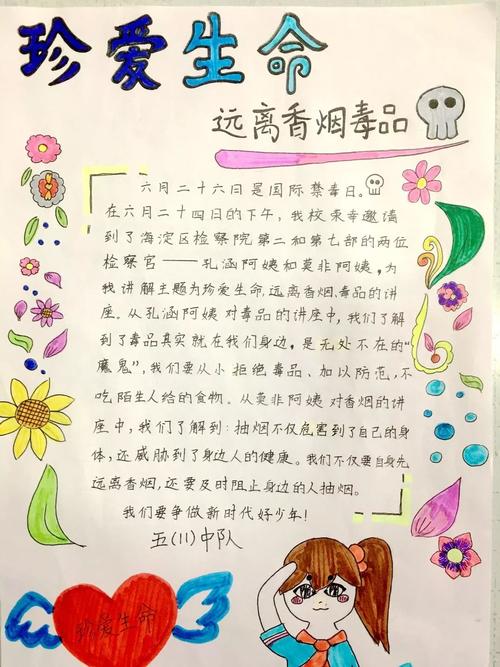 珍爱生命
远离香烟毒品
六月二十六日是国际禁毒日。
在六月二十四日的下午，我校荣幸邀请
到了海淀区检察院第二和第七部的两位
检察官——孔涵阿姨和莫非阿姨，为
我讲解主题为珍爱生命,远离香烟、毒品的讲
座。从孔涵阿姨对毒品的讲座中，我们了解
到了毒品真实就在我们身边，是无处不在的“
魔鬼”，我们要从小拒绝毒品、加以防范，不
吃陌生人给的食物。从莫非阿姨对香烟的讲
座中，我们了解到：抽烟不仅危害到了自己的身
体，还威胁到了身边人的健康。我们不仅要自身先
远离香烟，还要及时阻止身边的人抽烟。
我们要争做新时代好少年！
五(11)中队
珍爱生命